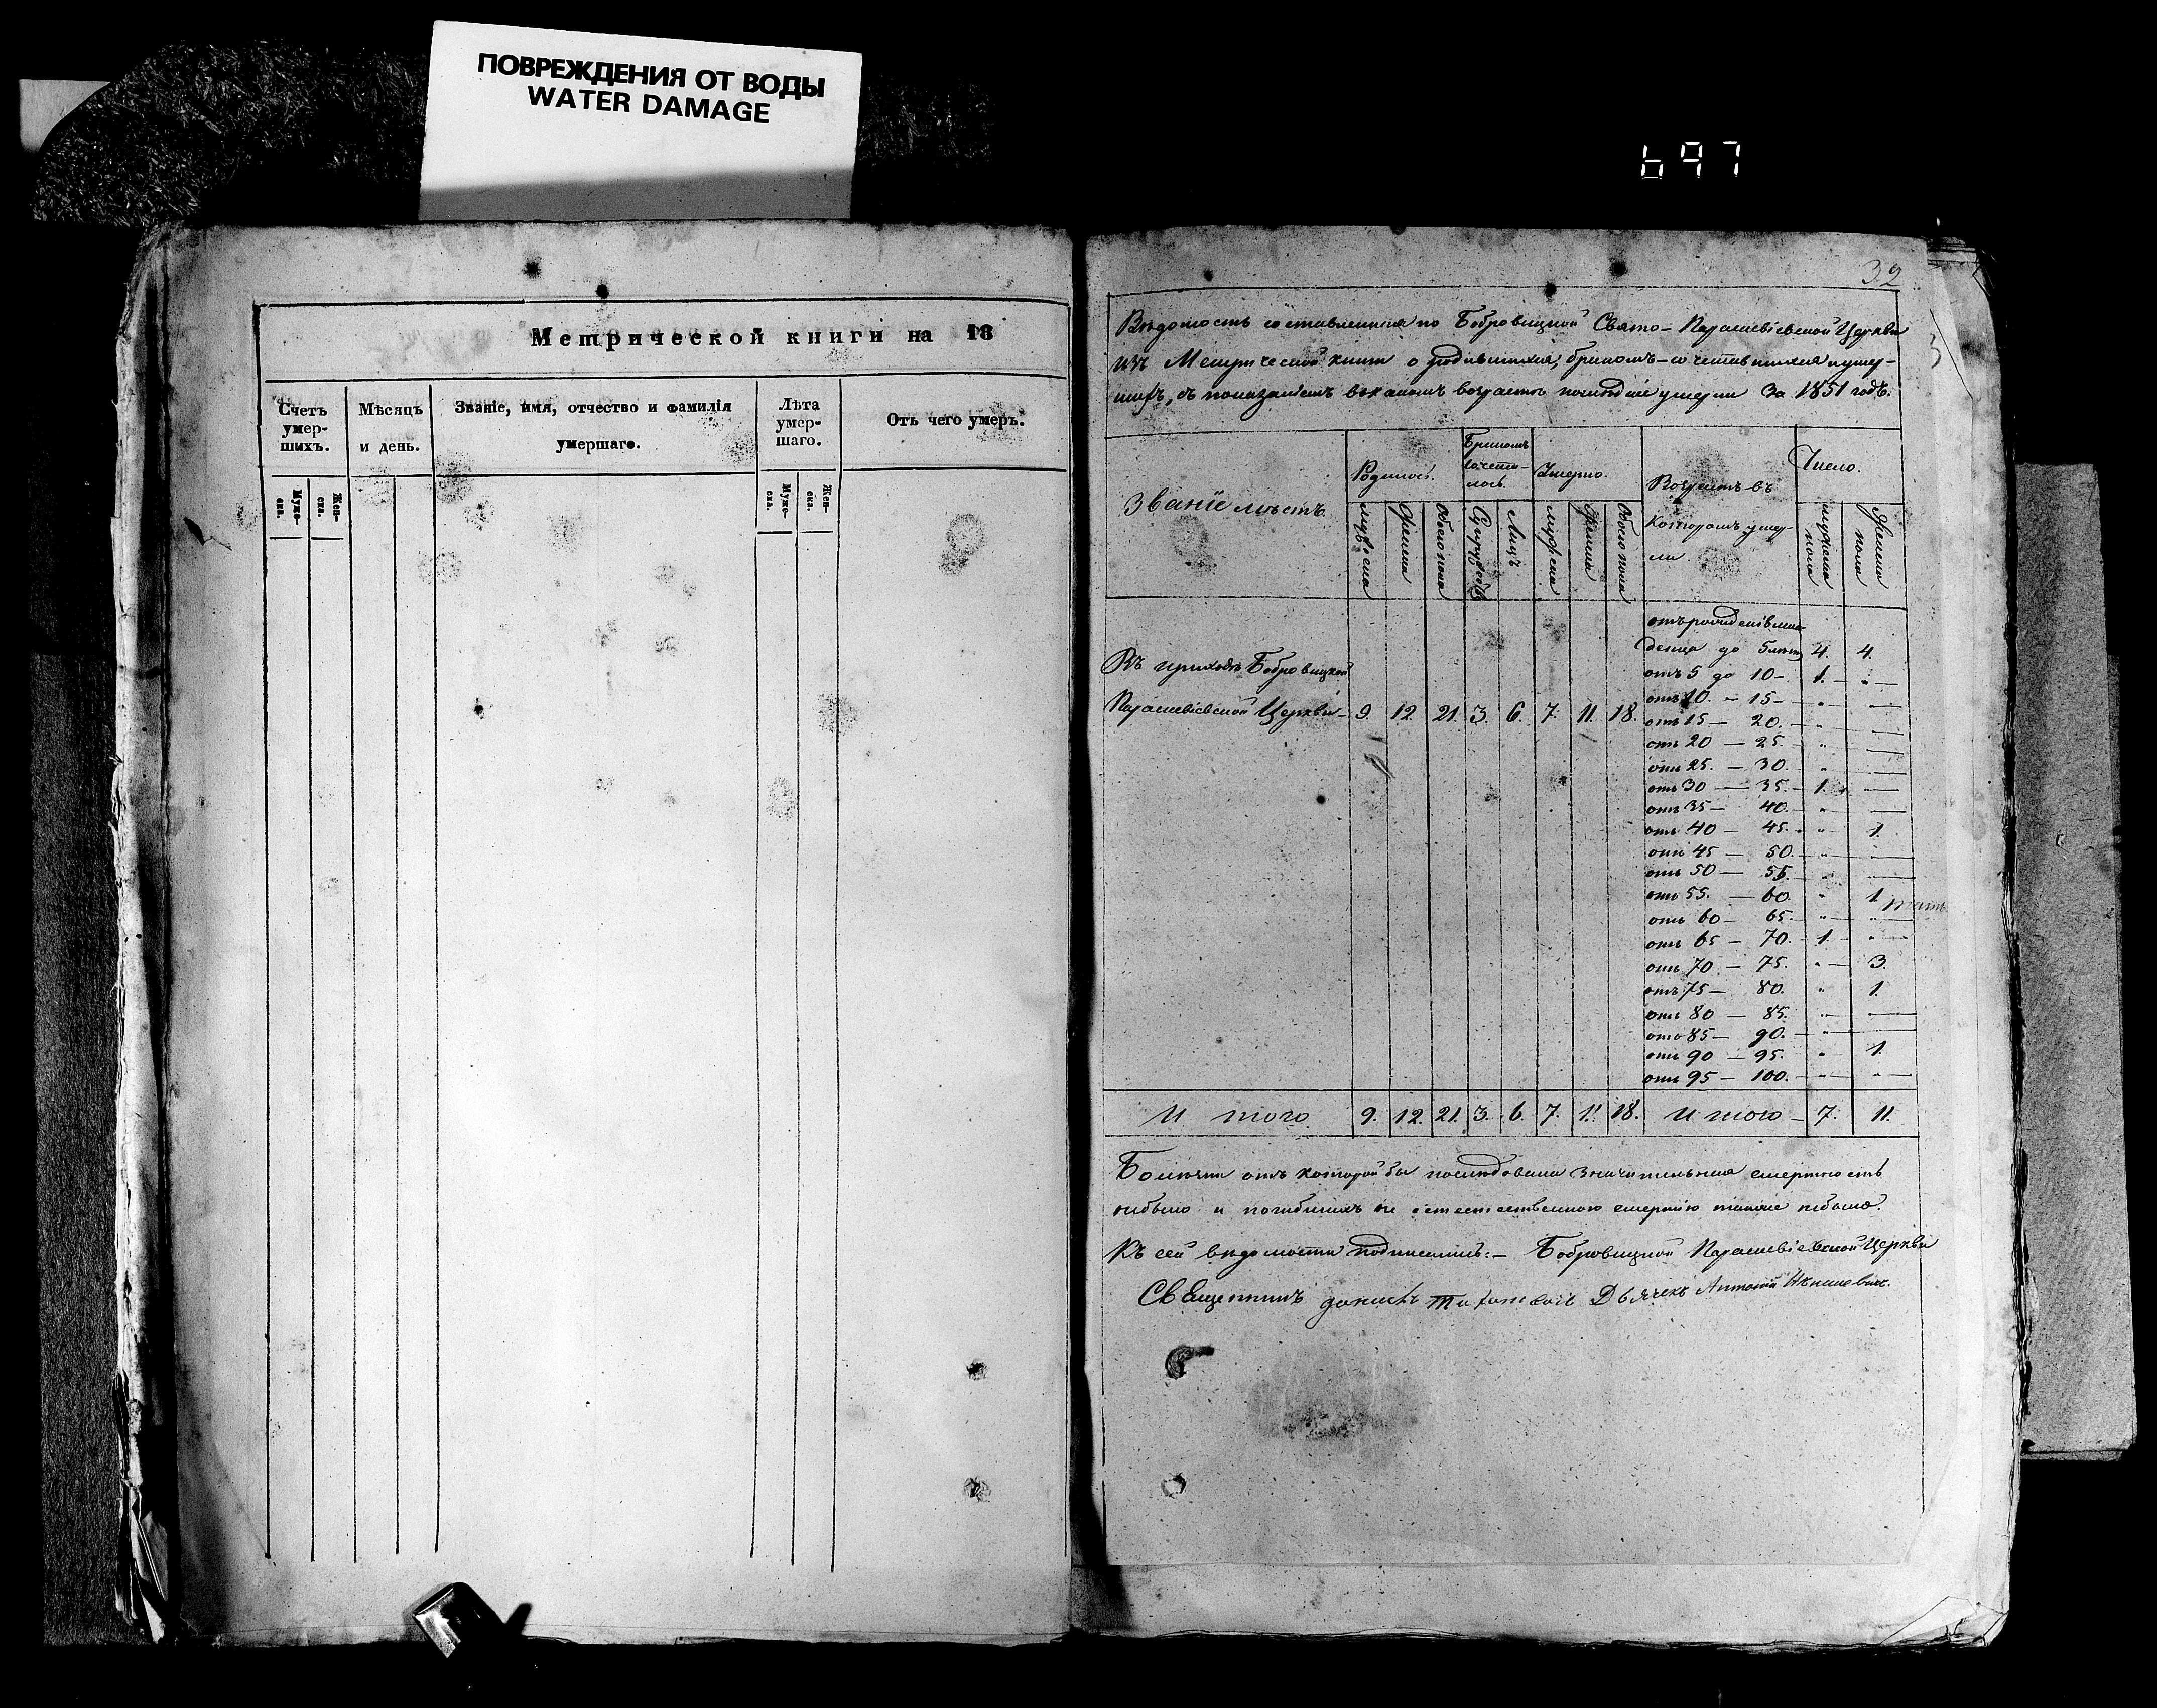 ПОВРЕЖДЕНИЯ ОТ ВОДЫ
WATER DAMAGE
697
Метрической книги на 18
Счетъ умер-шихъ.
Мѣсяцъ и день.
Званіе, имя, отчество и фамилія умершаго.
Лѣта умер-шаго.
Отъ чего умеръ.
Муже-ска.
Жен-ска.
Муже-ска.
Жен-ска.
32
Вѣдомость составленная по Бобровицкой Свято-Параскевіевской Церкви
изъ Метрической книги о родившихся, бракомъ-сочетавшихся и умер-
шихъ, съ показаніемъ въ какомъ возрастѣ послѣдніе умерли За 1851 годъ.
Званіе мѣстъ.
Родилось.
Бракомъ сочета-лось.
Умерло.
Возрастъ въ которомъ умер-ли.
Число.
мужеска
женска
Обоего пола
Супружествъ
Лицъ
мужеска
женска
Обоего пола
мужеска пола
женска пола
Въ приходѣ Бобровицкой
Параскевіевской Церкви - 9. 12. 21. 3. 6. 7. 11. 18.
отъ рожденія мла
денца до 5 лѣтъ 4. 4.
отъ 5 до 10 - 1. „ —
отъ 10. — 15 - „ —
отъ 15 — 20. - „ —
отъ 20 — 25. - „ —
отъ 25. — 30. „ —
отъ 30 — 35. - 1. —
отъ 35 — 40. - „ —
отъ 40 — 45. - „ 1.
отъ 45 — 50. - „ —
отъ 50 — 55. „ —
отъ 55. — 60. „ 1
отъ 60 — 65. - „ —
отъ 65 — 70. - 1. „ —
отъ 70. — 75. „ — 3.
отъ 75 — 80. „ 1.
отъ 80 — 85. „ —
отъ 85 — 90. - „ —
отъ 90 — 95. „ 1.
отъ 95 — 100. - „ — „ —
И того. 9. 12. 21. 3. 6. 7. 11. 18. И того - 7. 11.
Болѣзни отъ которой бы послѣдовала значительная смертность
небыло и погибшихъ не естественною смертію также небыло.
Къ сей вѣдомости подписались: - Бобровицкой Параскевіевской Церкви
Священникъ Дьячекъ Антоній